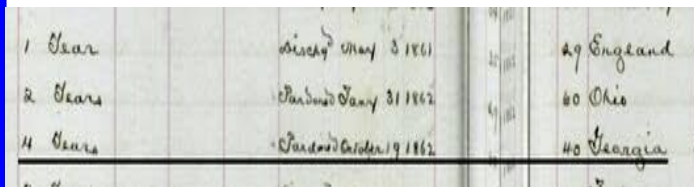 1 Year Dischd May 3 1861 29 England
2 Years Pardoned Jany 31 1862 60 Ohio
4 Years Pardoned October 19 1862 40 Georgia